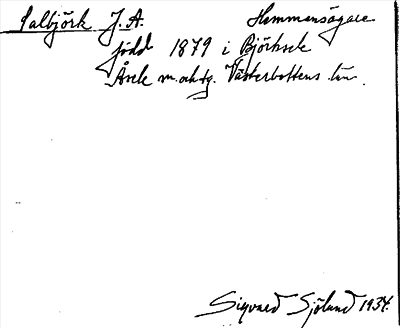 Salbjörk J. A. Hemmansägare
född 1879 i Björksele
Åsele m. och tg. Västerbottens län.
Sigvard Sjölund 1934.